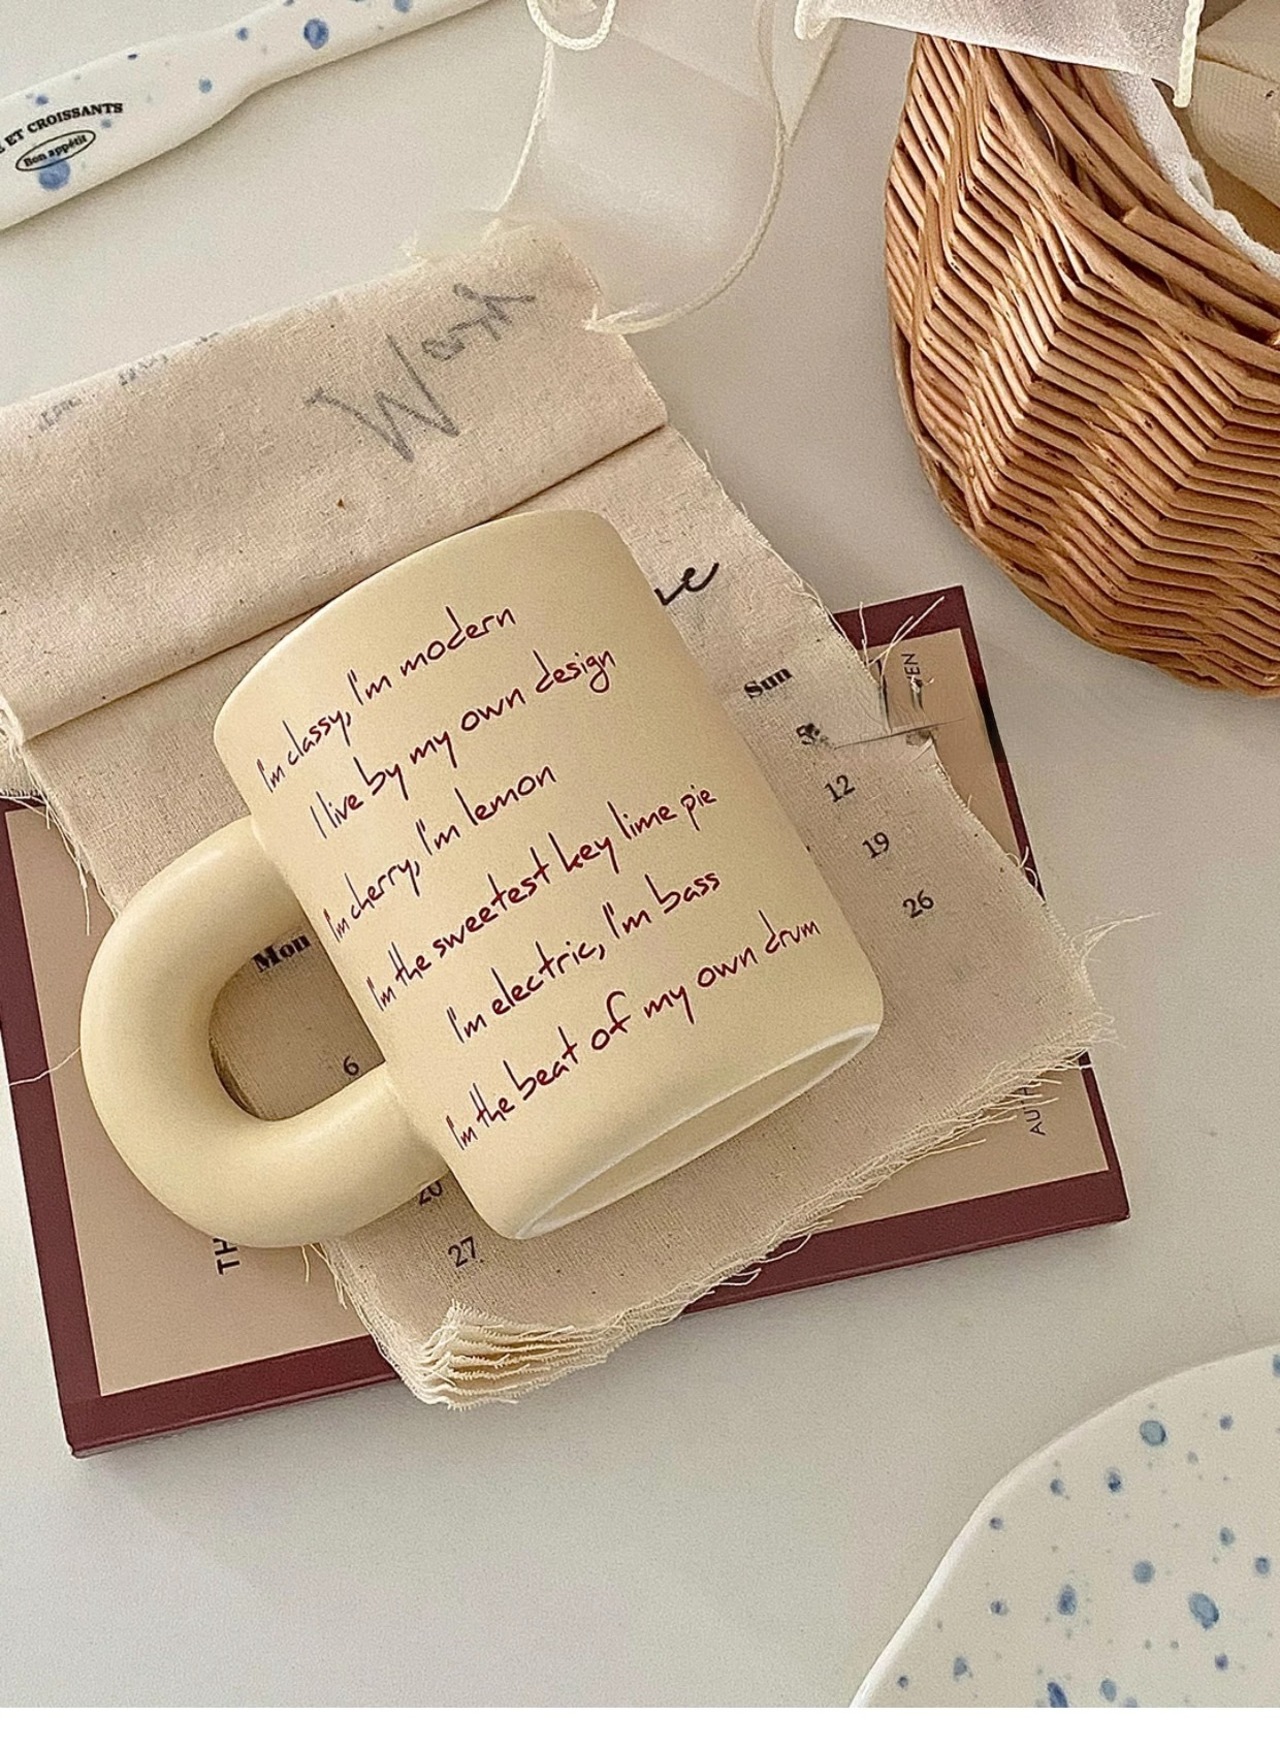 ET CROISSANTS
Bon appétit
Work
Sun
5
12
19
26
Mon
6
20
27
I'm classy, I'm modern
I live by my own design
I'm cherry, I'm lemon
I'm the sweetest key lime pie
I'm electric, I'm bass
I'm the beat of my own drum